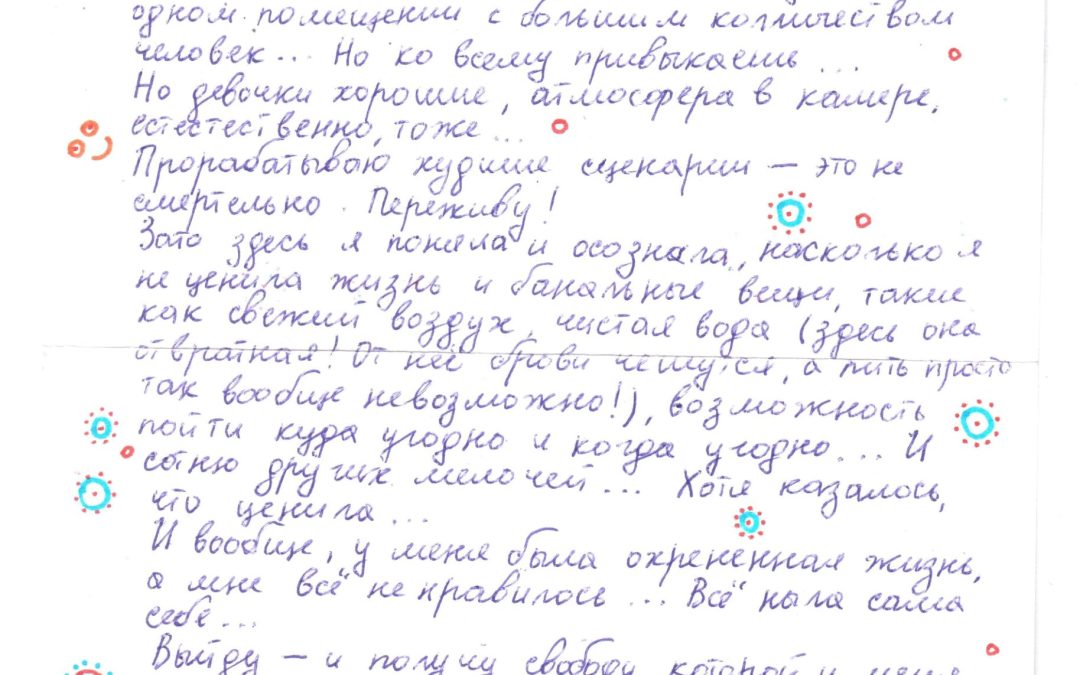 одном помещении с большим количеством
человек... Но ко всему привыкаешь...
Но девочки хорошие, атмосфера в камере,
естестественно, тоже...
Прорабатываю худшие сценарии — это не
смертельно. Переживу!
Зато здесь я поняла и осознала, насколько я
не ценила жизнь и банальные вещи, такие
как свежий воздух, чистая вода (здесь она
отвратная! От неё брови чешутся, а пить просто
так вообще невозможно!), возможность
пойти куда угодно и когда угодно... И
сотню других мелочей... Хотя казалось,
что ценила...
И вообще, у меня была охрененная жизнь,
а мне всё не нравилось... Всё ныла сама
себе...
Выйду — и получу свободу, которой у меня